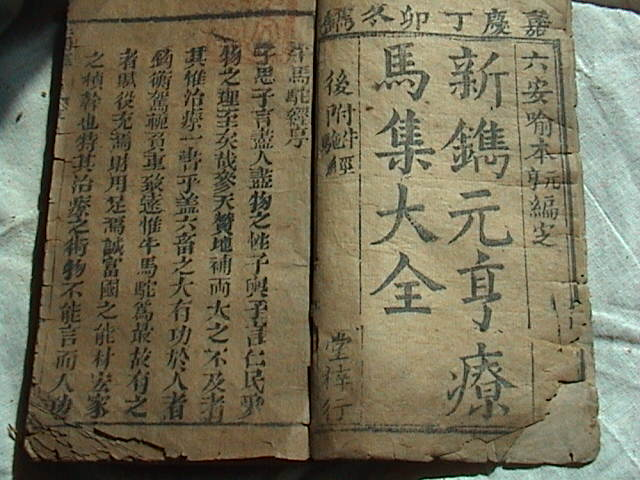 嘉慶丁卯冬鐫
六安喻本元亨編定
新鐫元亨療
馬集大全
後附牛駝經
堂梓行
牛馬駝經序
子思子言盡人盡物之性子輿子言仁民愛
物之理至矣哉參天贊地補兩大之不及者
其惟治療一書乎蓋六畜之大有功於人者
駕軛負重致遠惟牛馬駝為最故有之
者騎從充湯財用足焉誠富國之能材安家
之楨幹也特其治療之術物不能言而人